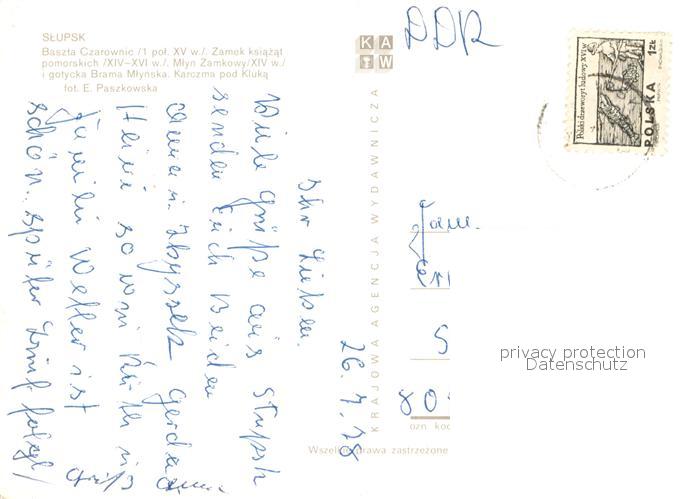 SŁUPSK
Baszta Czarownic /1 poł. XV w./. Zamek książąt
pomorskich /XIV-XVI w./. Młyn Zamkowy/XIV w./
i gotycka Brama Młyńska. Karczma pod Kluką
fot. E. Paszkowska
KAW
KRAJOWA AGENCJA WYDAWNICZA
DDR
Polski drzeworyt ludowy XVI w
POLSKA 1ZŁ
26. 7. 78
Ihr Lieben.
Viele Grüße aus Słupsk
senden Euch Beiden
Oma u. Zbyszek Gerda
Heini sowie
Familie Wetter ist
schön. später Brief folgt/
Gruß
Fam.
S
80
ozn kod
Wszelkie prawa zastrzeżone
privacy protection
Datenschutz